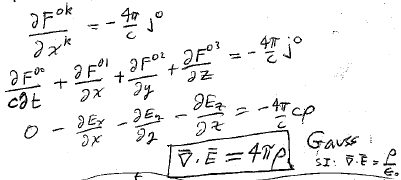 ∂F^{0k}/∂x^k = -4π/c j^0
∂F^{00}/c∂t + ∂F^{01}/∂x + ∂F^{02}/∂y + ∂F^{03}/∂z = -4π/c j^0
0 - ∂E_x/∂x - ∂E_y/∂y - ∂E_z/∂z = -4π/c cρ
∇·E = 4πρ Gauss:
SI: ∇·E = ρ/ε₀